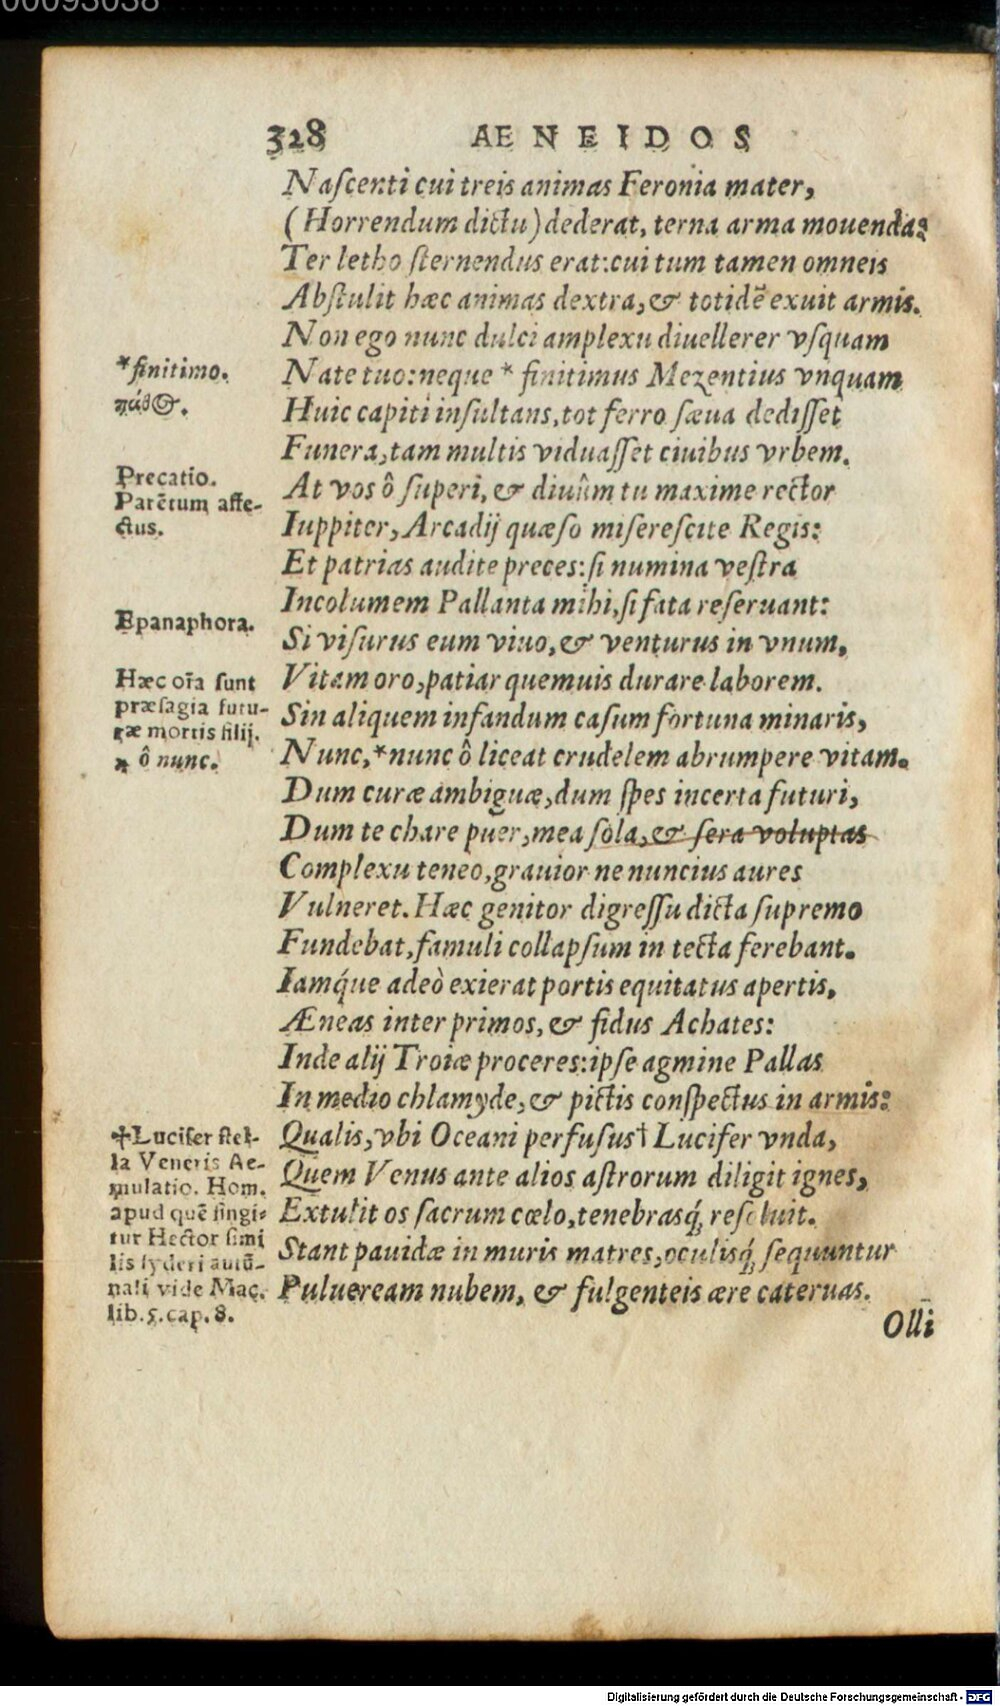 00093038
328 AENEIDOS
Naſcenti cui treis animas Feronia mater,
(Horrendum dictu) dederat, terna arma mouenda:
Ter letho ſternendus erat: cui tum tamen omneis
Abſtulit hæc animas dextra, & totidē exuit armis.
Non ego nunc dulci amplexu diuellerer vſquam
*finitimo.
Nate tuo: neque * finitimus Mezentius vnquam
πάθ⊙.
Huic capiti inſultans, tot ferro ſæua dediſſet
Funera, tam multis viduaſſet ciuibus vrbem.
Precatio.
Parētum affe-
ctus.
At vos ô ſuperi, & diuûm tu maxime rector
Iuppiter, Arcadij quæſo miſereſcite Regis:
Et patrias audite preces: ſi numina veſtra
Incolumem Pallanta mihi, ſi fata reſeruant:
Epanaphora.
Si viſurus eum viuo, & venturus in vnum,
Hæc oīa ſunt
præſagia futu-
ræ mortis filij.
* ô nunc.
Vitam oro, patiar quemuis durare laborem.
Sin aliquem infandum caſum fortuna minaris,
Nunc, *nunc ô liceat crudelem abrumpere vitam.
Dum curæ ambiguæ, dum ſpes incerta futuri,
Dum te chare puer, mea ſola, & ſera voluptas
Complexu teneo, grauior ne nuncius aures
Vulneret. Hæc genitor digreſſu dicta ſupremo
Fundebat, famuli collapſum in tecta ferebant.
Iamq́ue adeò exierat portis equitatus apertis,
Æneas inter primos, & fidus Achates:
Inde alij Troiæ proceres: ipſe agmine Pallas
In medio chlamyde, & pictis conſpectus in armis:
✝Lucifer ſtel-
la Veneris Ae-
mulatio. Hom.
apud quē fingi-
tur Hector ſimi
lis ſyderi autū-
nali vide Mac.
lib.5.cap.8.
Qualis, vbi Oceani perfuſus† Lucifer vnda,
Quem Venus ante alios aſtrorum diligit ignes,
Extulit os ſacrum cœlo, tenebrasq́; reſoluit.
Stant pauidæ in muris matres, oculisq́; ſequuntur
Pulueream nubem, & fulgenteis ære cateruas.
Olli
Digitalisierung gefördert durch die Deutsche Forschungsgemeinschaft - DFG